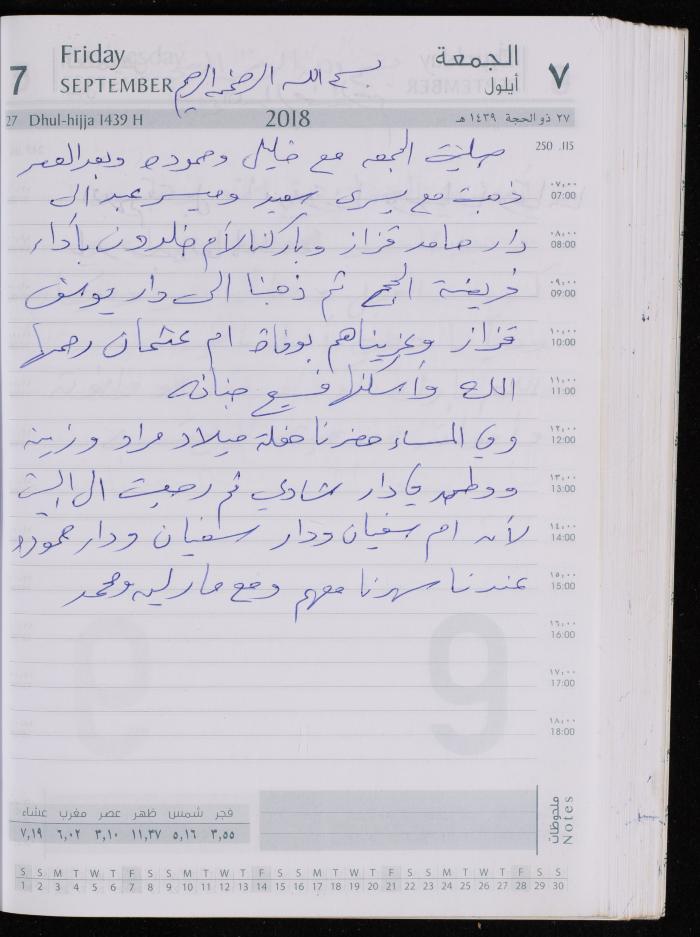 Friday الجمعة
7 SEPTEMBER أيلول ٧
بسم الله الرحمن الرحيم
27 Dhul-hijja 1439 H 2018 ٢٧ ذو الحجة ١٤٣٩ هـ
250 .115
صليت الجمعه مع خليل وحموده وبعد العصر
٠٧,٠٠ 07:00
ذهبت مع يسرى سعيد وميسر عبد الى
٠٨,٠٠ 08:00
دار حامد قزاز وباركنا لأم خلدون بأداء
٠٩,٠٠ 09:00
فريضة الحج ثم ذهبنا الى دار يوسف
١٠,٠٠ 10:00
قزاز وعزيناهم بوفاة ام عثمان رحمها
١١,٠٠ 11:00
الله وأسكنها فسيح جنانه
١٢,٠٠ 12:00
وفي المساء حضرنا حفلة ميلاد مراد وزينه
١٣,٠٠ 13:00
في دار شادي ثم رجعت الى البيت
١٤,٠٠ 14:00
لأنه ام سفيان ودار سفيان ودار حموده
١٥,٠٠ 15:00
عندنا سهرنا معهم ومع مارلين ومحمد
١٦,٠٠ 16:00
١٧,٠٠ 17:00
١٨,٠٠ 18:00
فجر شمس ظهر عصر مغرب عشاء
٣,٥٥ ٥,١٦ ١١,٣٧ ٣,١٠ ٦,٠٢ ٧,١٩
ملحوظات
Notes
S S M T W T F S S M T W T F S S M T W T F S S M T W T F S S
1 2 3 4 5 6 7 8 9 10 11 12 13 14 15 16 17 18 19 20 21 22 23 24 25 26 27 28 29 30